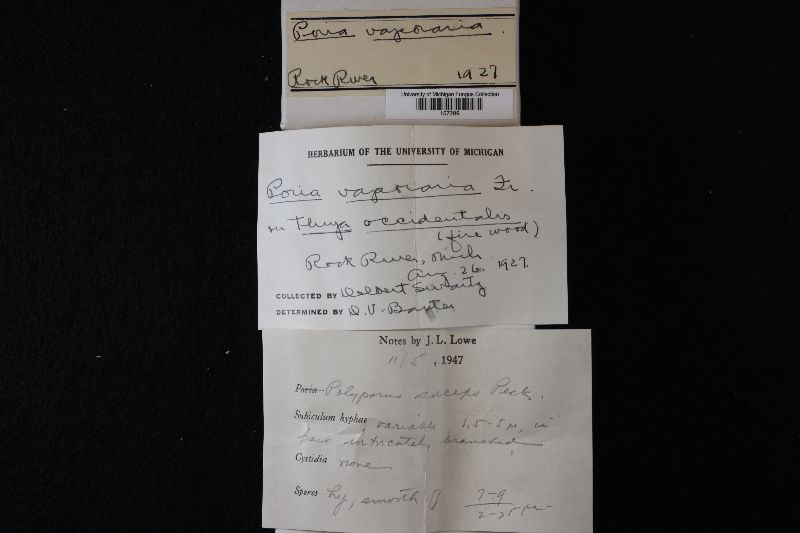 Poria vaporaria.
Rock River 1927
University of Michigan Fungus Collection
157289
HERBARIUM OF THE UNIVERSITY OF MICHIGAN
Poria vaporaria Fr.
on Thuya occidentalis
(fire wood)
Rock River, Mich.
Aug. 26. 1927.
COLLECTED BY Delbert Swartz
DETERMINED BY D. V. Baxter
Notes by J. L. Lowe
11/5, 1947
Poria Polyporus anceps Peck.
Subiculum hyphae variable 1.5-5μ, in
part intricately branched
Cystidia none
Spores hy, smooth 7-9